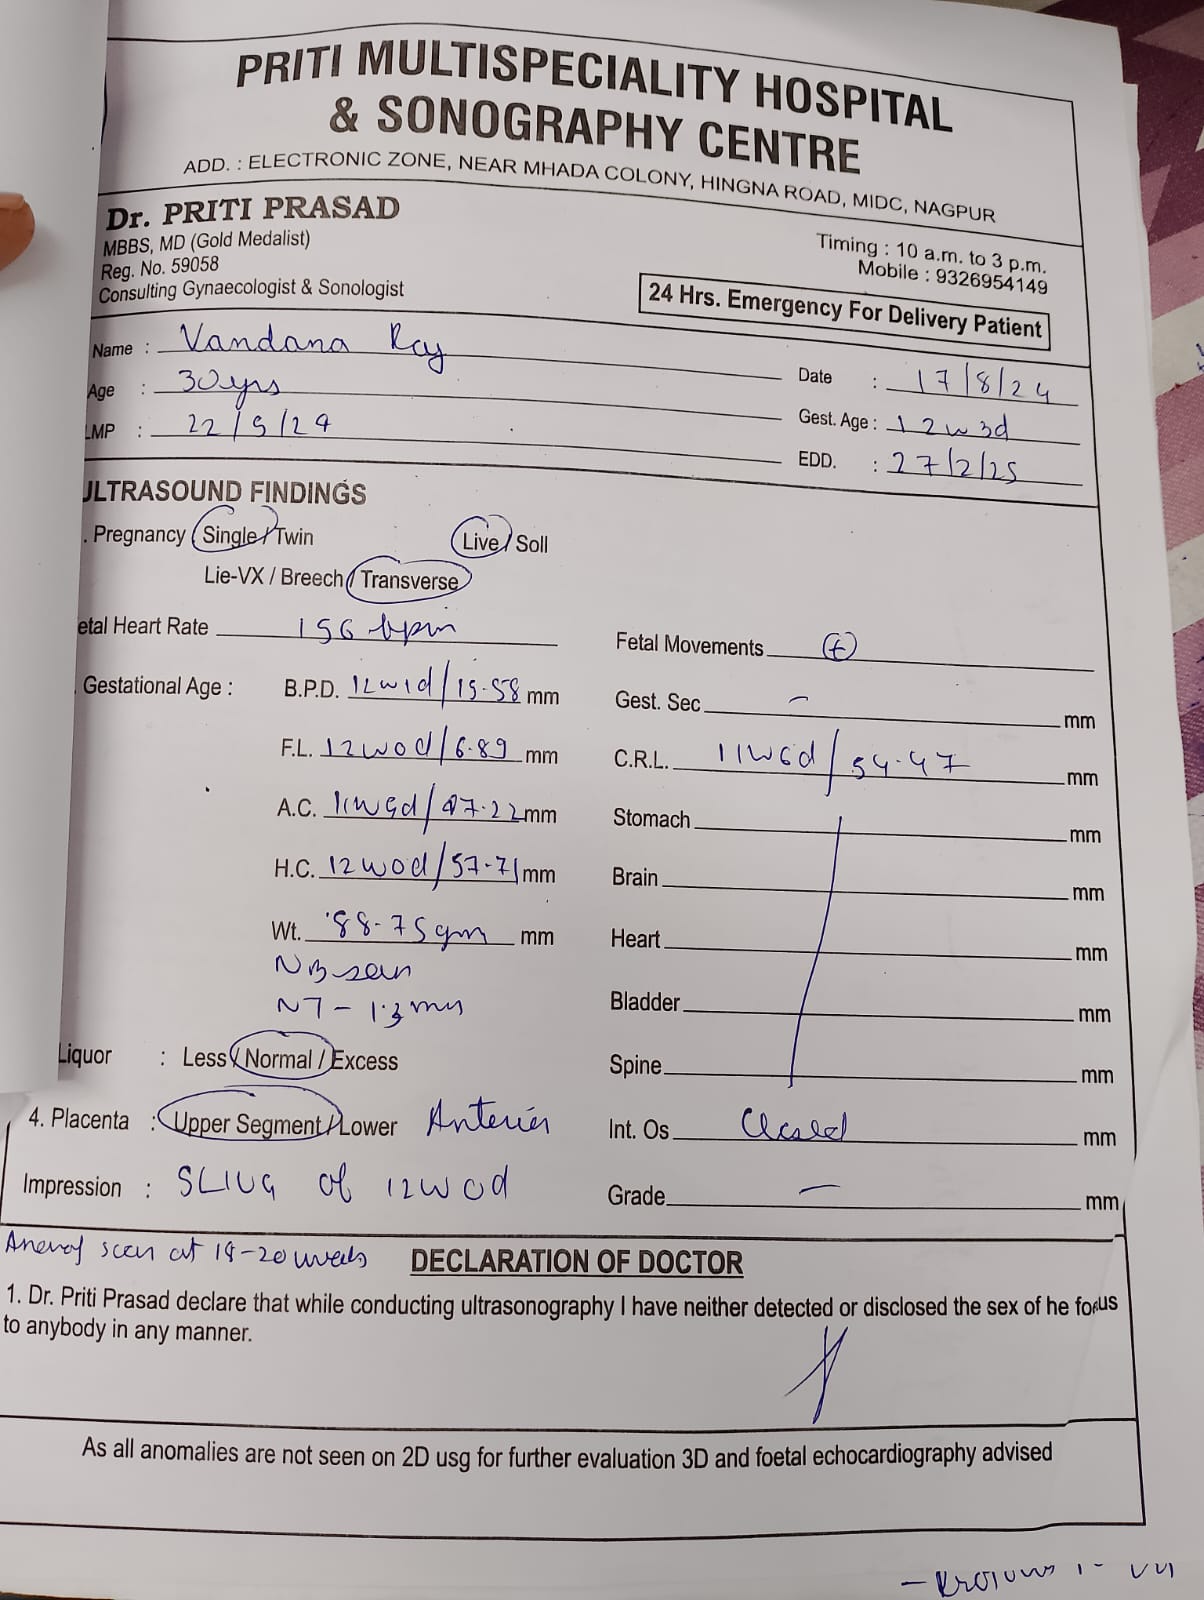 PRITI MULTISPECIALITY HOSPITAL
& SONOGRAPHY CENTRE
ADD. : ELECTRONIC ZONE, NEAR MHADA COLONY, HINGNA ROAD, MIDC, NAGPUR
Dr. PRITI PRASAD
MBBS, MD (Gold Medalist)
Reg. No. 59058
Consulting Gynaecologist & Sonologist
Timing : 10 a.m. to 3 p.m.
Mobile : 9326954149
24 Hrs. Emergency For Delivery Patient
Name : Vandana Ray
Age : 30yrs
LMP : 22/5/24
Date : 17/8/24
Gest. Age : 12w3d
EDD. : 27/2/25
ULTRASOUND FINDINGS
. Pregnancy Single / Twin Live / Soll
Lie-VX / Breech / Transverse
etal Heart Rate 156 bpm Fetal Movements (+)
. Gestational Age : B.P.D. 12w1d/19.58 mm Gest. Sec - mm
F.L. 12w0d/6.89 mm C.R.L. 11w6d/54.47 mm
A.C. mm Stomach mm
H.C. 12w0d/57.71 mm Brain mm
Wt. 88.75gm mm Heart mm
NB seen
NT - 1.3 mm Bladder mm
Liquor : Less / Normal / Excess Spine mm
4. Placenta : Upper Segment / Lower Anterior Int. Os Closed mm
Impression : SLIUG of 12w0d Grade - mm
scan at 18-20 weeks
DECLARATION OF DOCTOR
1. Dr. Priti Prasad declare that while conducting ultrasonography I have neither detected or disclosed the sex of he foeus
to anybody in any manner.
As all anomalies are not seen on 2D usg for further evaluation 3D and foetal echocardiography advised